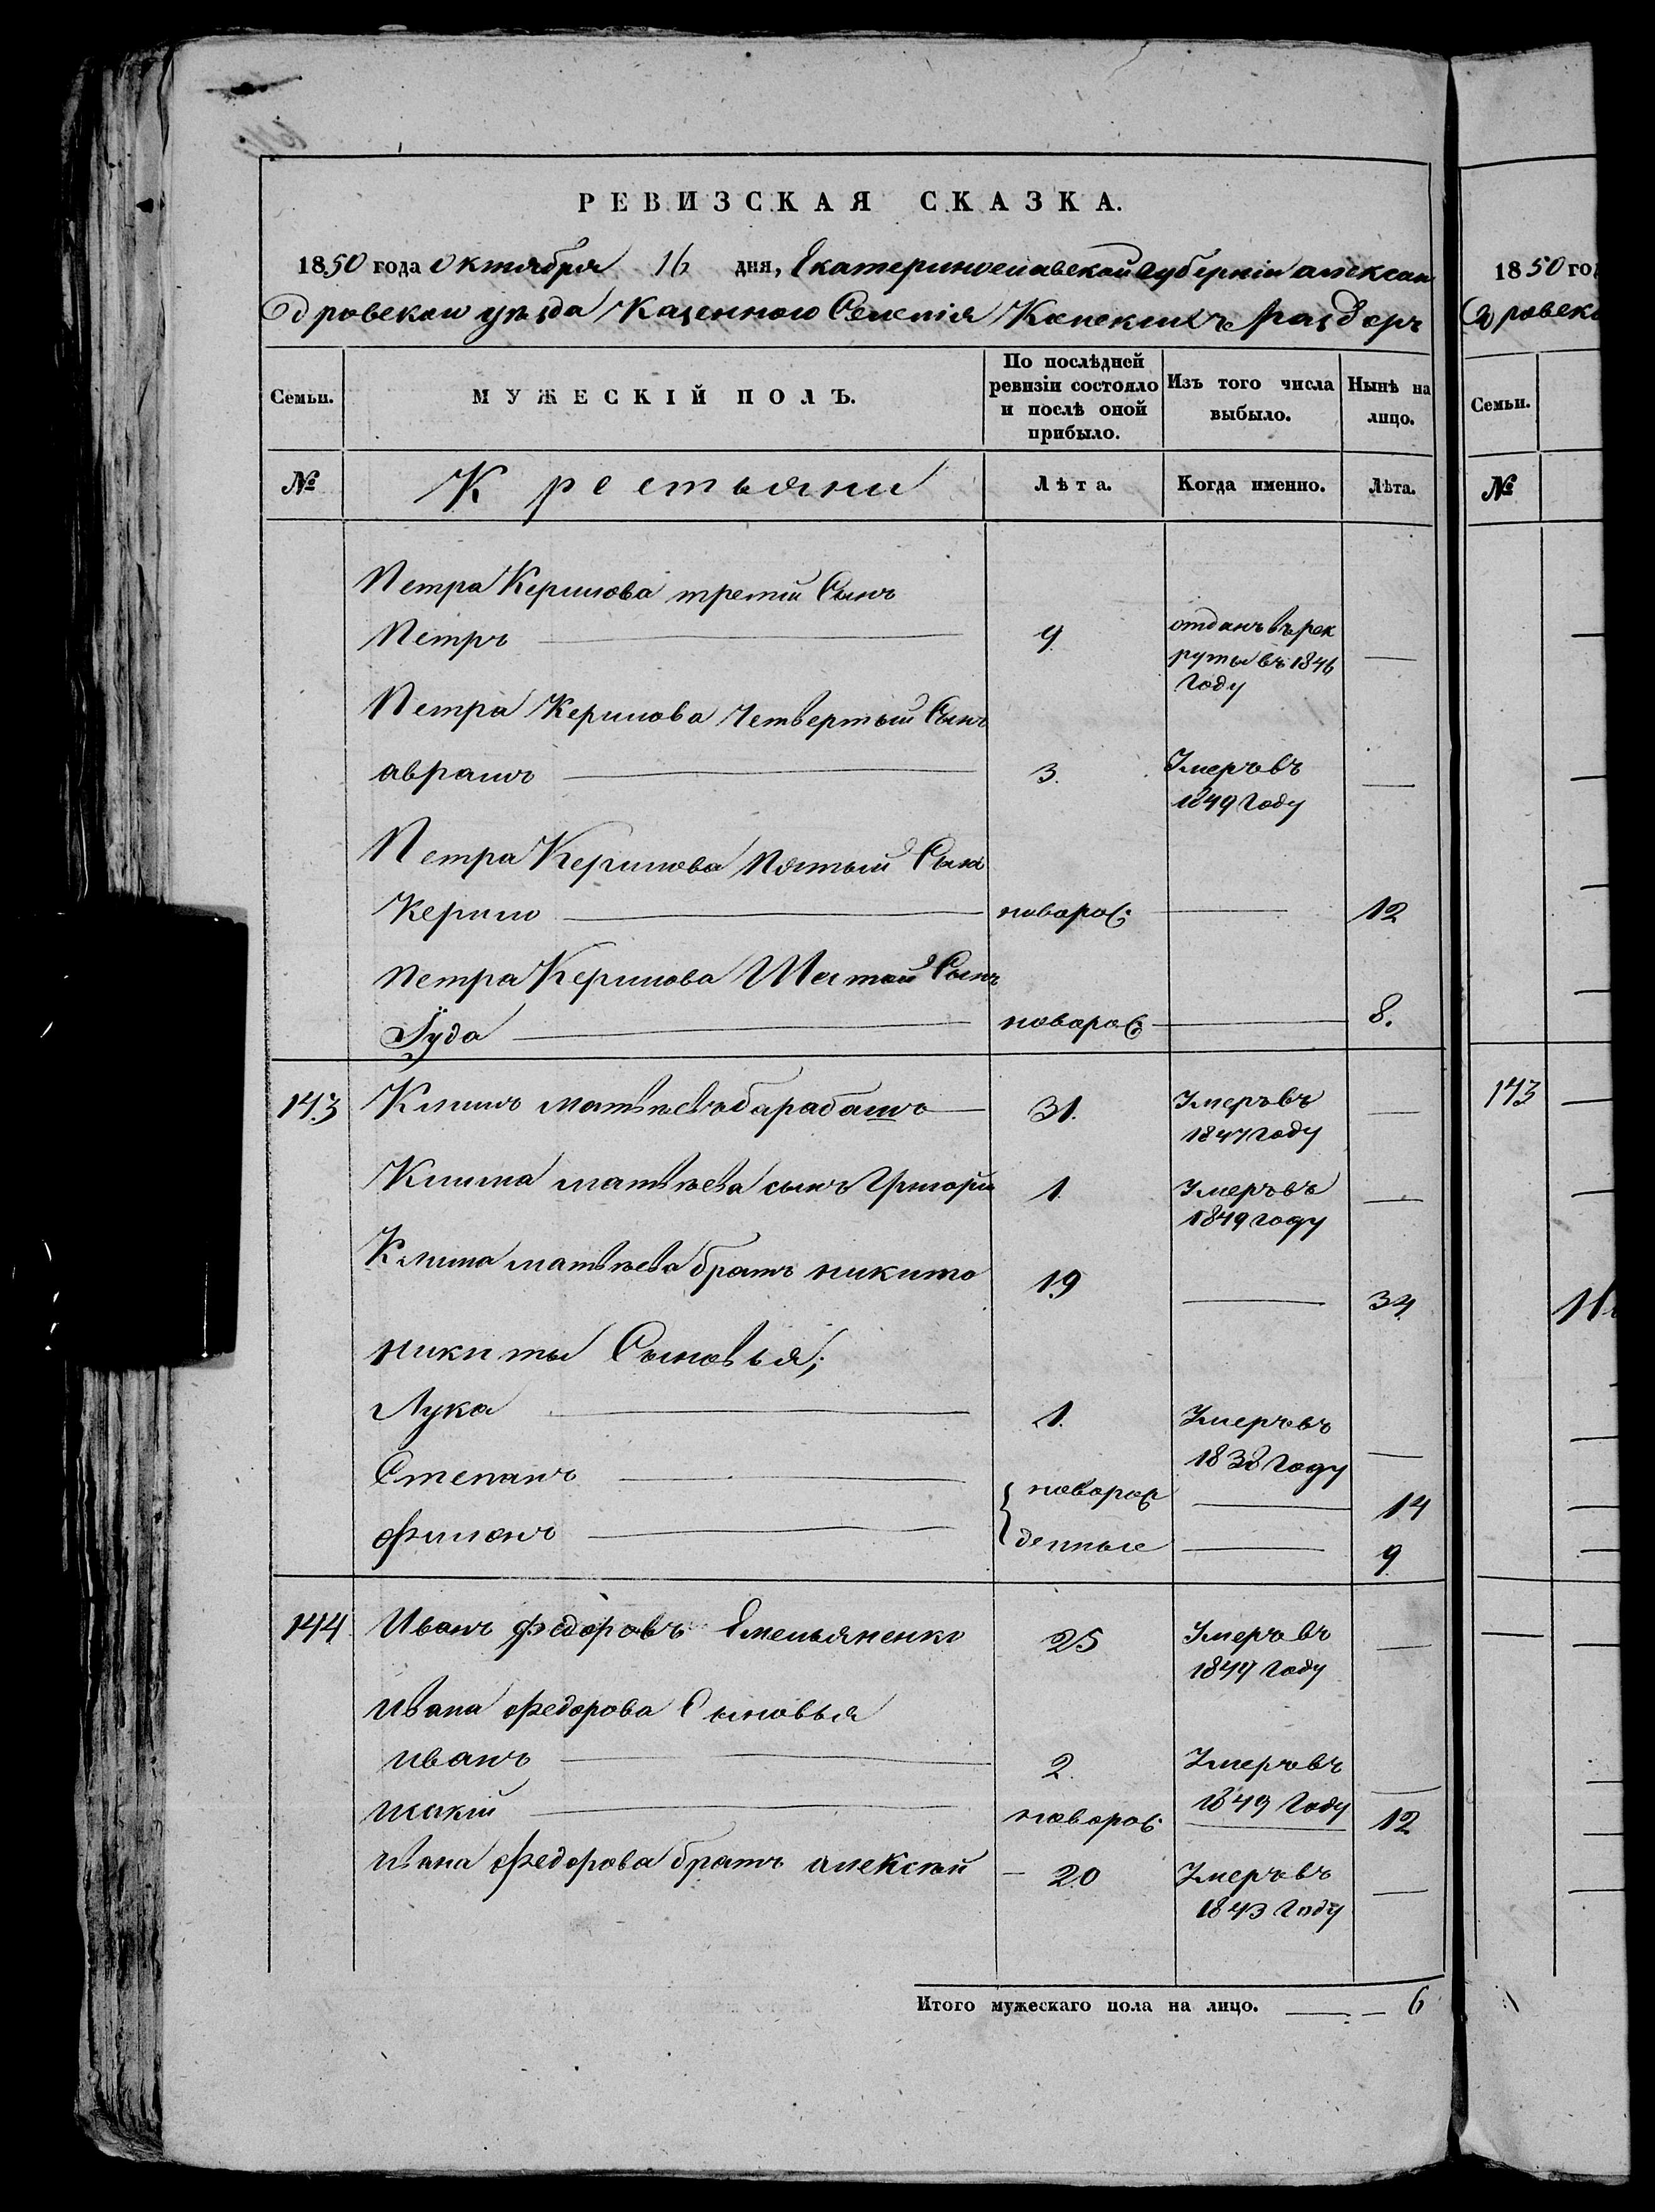 РЕВИЗСКАЯ СКАЗКА.
1850 года Октября 16 дня, Екатеринославской губерніи алексан
дровскаго уѣзда Казенного Селенія Конскихъ Раздоръ
Семьи.
МУЖЕСКІЙ ПОЛЪ.
По послѣдней ревизіи состояло и послѣ оной прибыло.
Изъ того числа выбыло.
Нынѣ на лицо.
№
Крестьяни
Лѣта.
Когда именно.
Лѣта.
Петра Керилова третій Сынъ
Петръ 9 отданъ въ рек
руты въ 1846
году
Петра Керилова Четвертый Сынъ
аврамъ 3. Умеръ въ
1849 Году
Петра Керилова Пятый Сынъ
Керило новорож: 12
Петра Керилова Шестой Сынъ
Іуда новорож: 8.
143 Климъ матвѣевъ барабашъ 31. Умеръ въ
1847 году
Клима матвѣева сынъ Григорій 1. Умеръ въ
1849 году
Клима матвѣева братъ никита 19 34
никиты Сыновья;
Лука 1. Умеръ въ
1838 Году
Степанъ новорож 14
Филонъ денные 9
144 Иванъ федоровъ Емельяненко 25 Умеръ въ
1849 Году
Ивана Федорова Сыновья
иванъ 2. Умеръ въ
1849 Году
новорож: 12
Ивана Федорова братъ алексѣй 20 Умеръ въ
1843 Году
Итого мужескаго пола на лицо. 6
1850 год
дровск
Семьи.
№
143